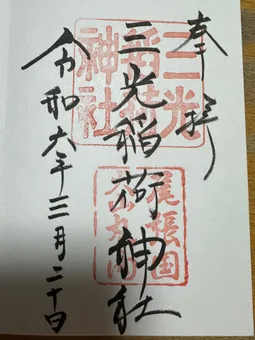 奉拝
三光稲荷神社
令和六年三月二十日
三光稲荷神社
尾張国犬山丸の内